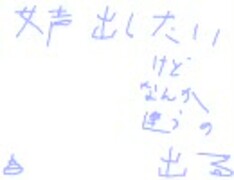 女声出したい
けど
なんか
違うの
出る